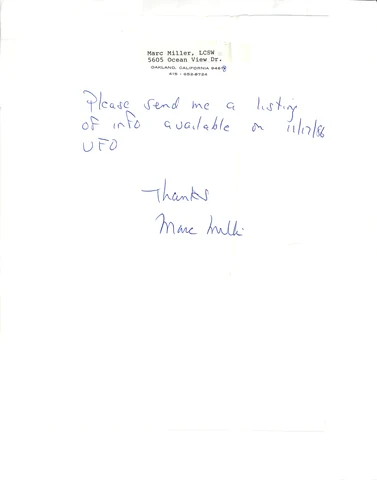 Marc Miller, LCSW
5605 Ocean View Dr.
OAKLAND, CALIFORNIA
Please send me a listing
of info available on 11/17/86
UFO
Thanks
Marc Miller